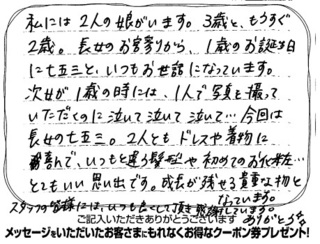 私には2人の娘がいます。3歳と、もうすぐ
2歳。長女のお宮参りから、1歳のお誕生日
に七五三と、いつもお世話になっています。
次女が1歳の時には、1人で写真を撮って
いただくのに泣いて泣いて泣いて…今回は
長女の七五三。2人ともドレスや着物に
喜んで、いつもと違う髪型や初めてのお化粧…
とてもいい思い出です。成長が残せる貴重な物と
なっています。
スタッフの皆様には、いつも良くして頂き感謝しています。
ありがとうございます
ご記入いただきありがとうございます
メッセージをいただいたお客さまにもれなくお得なクーポン券プレゼント!